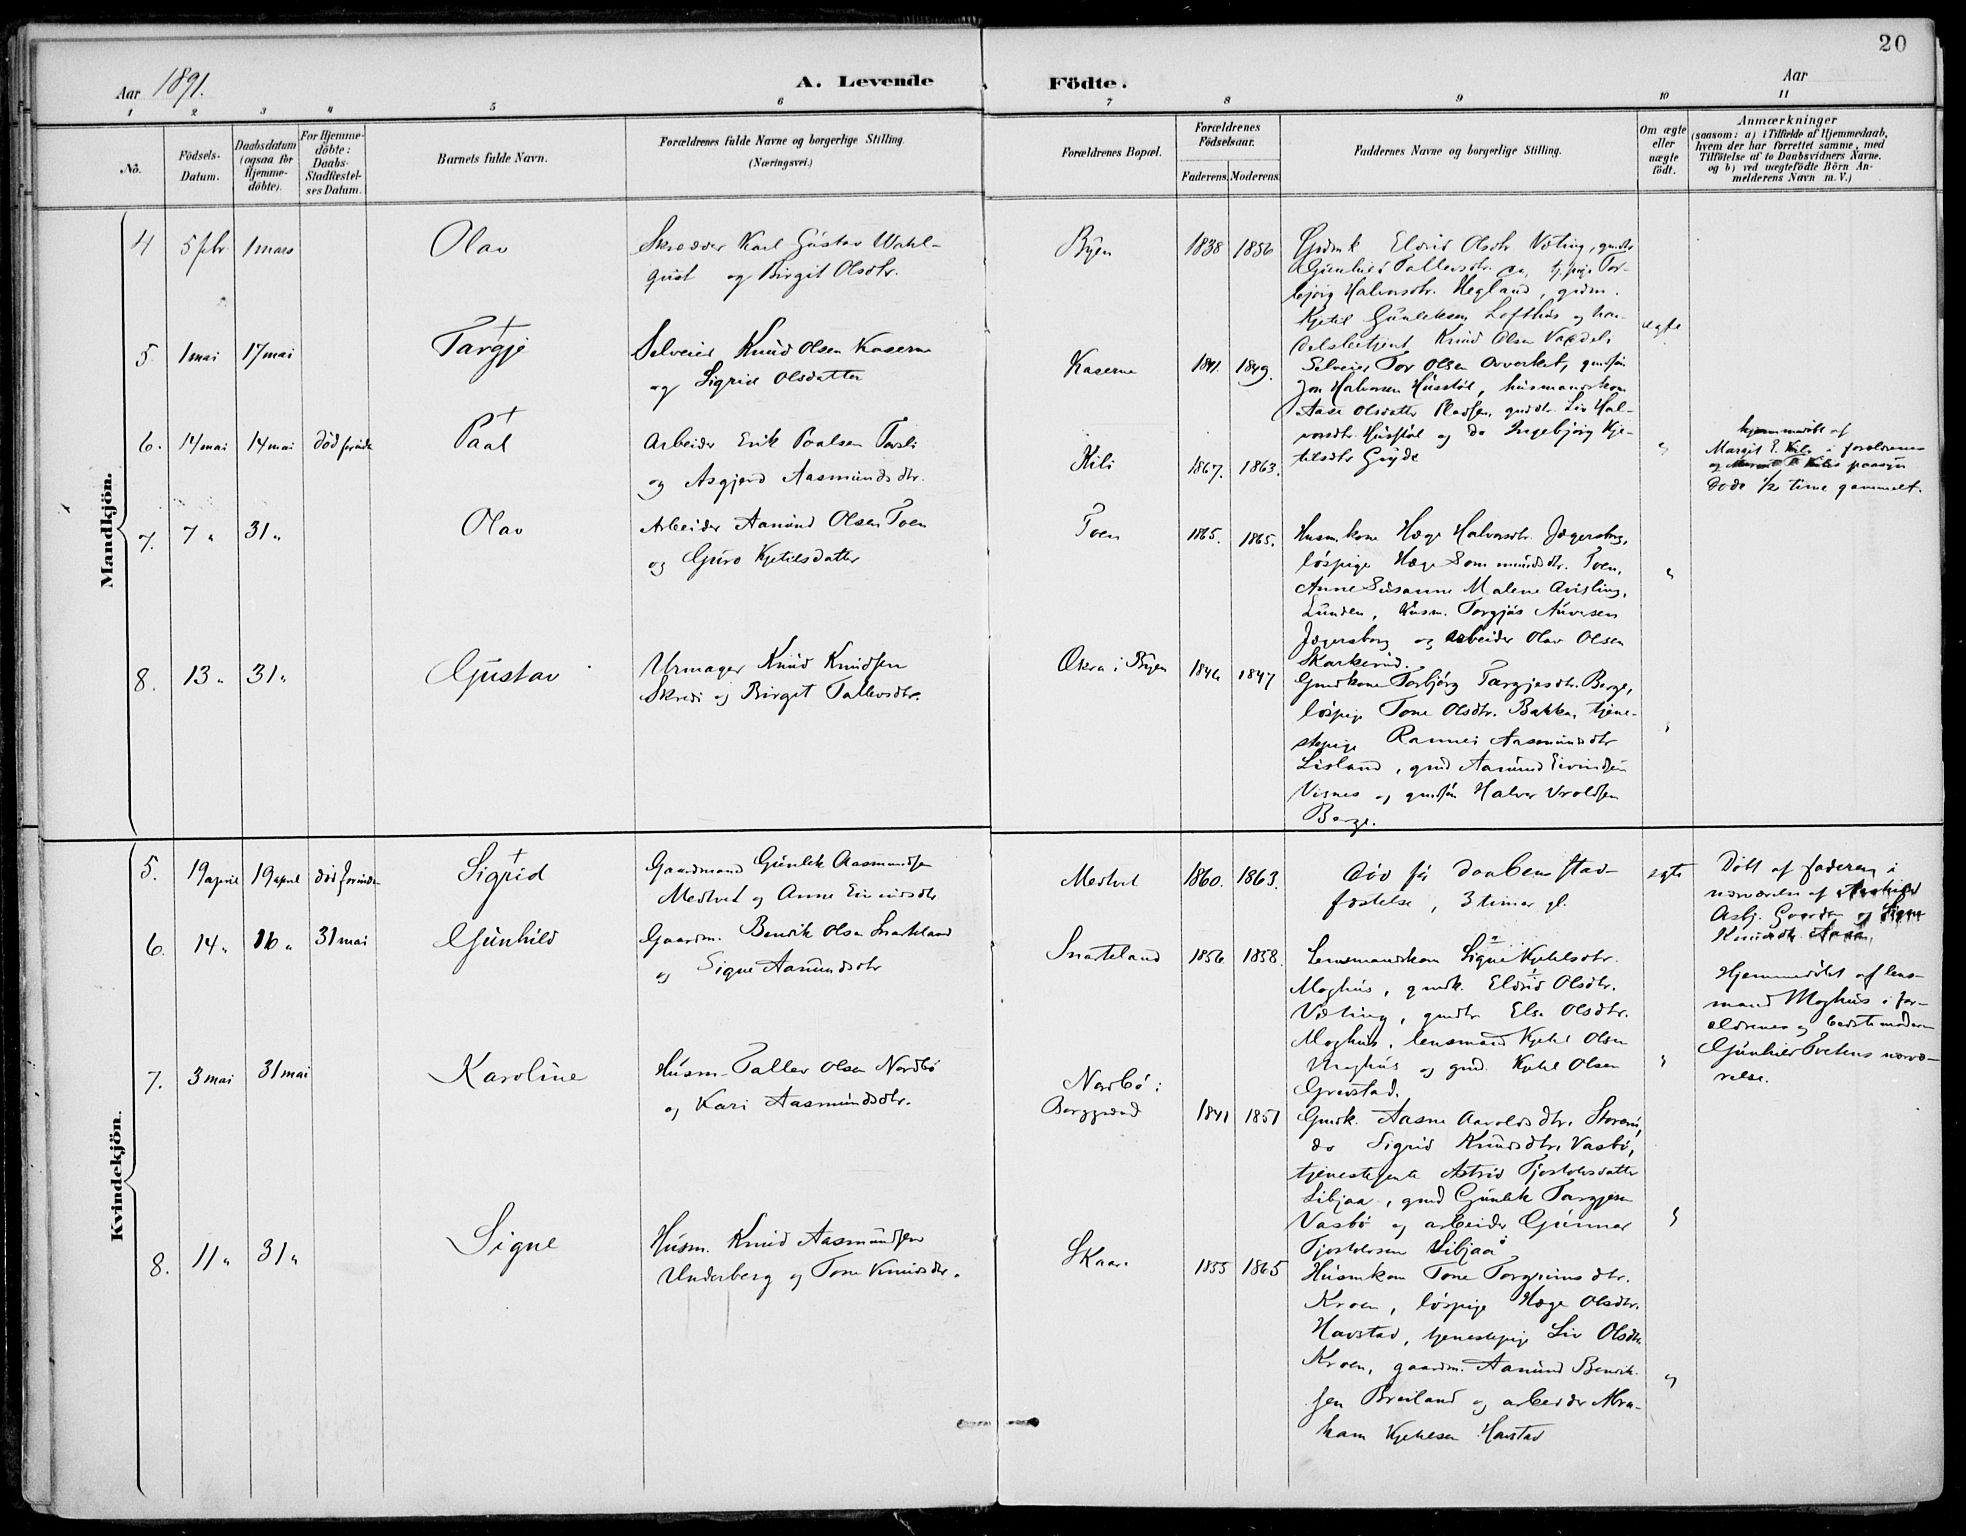 20
Aar 1891.
A. Levende Födte.
Aar
1 2 3 4 5 6 7 8 9 10 11
No.
Födsels-
Datum.
Daabsdatum
(ogsaa for
Hjemme-
döbte).
For Hjemme-
döbte:
Daabs-
Stadfæstel-
ses Datum.
Barnets fulde Navn.
Forældrenes fulde Navne og borgerlige Stilling.
(Næringsvei.)
Forældrenes Bopæl.
Forældrenes
Födselsaar.
Faderens.
Moderens.
Faddernes Navne og borgerlige Stilling.
Om ægte
eller
uægte
födt.
Anmærkninger
(saasom: a) i Tilfælde af Hjemmedaab,
hvem der har forrettet samme, med
Tilföielse af to Daabsvidners Navne.
og b) ved uægtefödte Börn An-
melderens Navn m. V.)
Mandkjön.
4 5 fbr 1 mars
Olav
Skrædder Karl Gustav Wahl-
qust og Birgit Olsdtr.
Byen
1838 1856
Grdmk Eldrid Olsdtr. Væting, gmdtr
Gunhild Tallevsdtr. tj.pige Tor-
bjørg Halvorsdtr. Hegland, grdm.
Kjetil Gunleksen Lofthus og han-
delsbetjent Knud Olsen
ægte
5 1 mai 17 mai
Targje
Selveier Knud Olsen Kaserne
og Sigrid Olsdatter
Kaserne
1841. 1849.
Selveier Tor Olsen gmdsøn
Jon Halvorsen Husstøl, husmandskone
Aase Olsdatter Pladsen, gmddtr. Liv Hal-
vorsdtr. Husstøl og do Ingebjørg Kje-
tilsdtr
6. 14 mai 14 mai død forinden
Paal
Arbeider Erik Paalsen
og Asgjerd Aasmundsdtr.
Kili
1867. 1863.
"
hjemmedøbt af
Margit E. Kile i forældrenes
og paasyn
Døde 1/2 time gammelt.
7. 7 " 31 "
Olav
Arbeider Aanund Olsen Tven
og Guro Kjetilsdatter
Tven
1865. 1865.
Husm.kone Hæge Halvorsdtr. Jægersborg,
løspige Hæge Sommundsdtr. Tven,
Anne Susanne Malene Qvisling,
Lunden, Husm. Torgjus Anversen
Jægersborg og arbeider Olav Olsen
Skarkerud.
"
8. 13 " 31 "
Gustav
Urmager Knud Knudsen
Skredi og Birget Tallevsdtr.
Okra i Byen
1846 1847
Gmdkone Torbjørg Targjesdtr. Berge,
løspige Tone Olsdtr. Bakka, tjene-
stepige Rannei Aasmundsdtr
Lisland, gmd Aanund Eivindsen
Visnes og gmdsøn Halvor Vroldsen
Berge.
"
Kvindekjön.
5. 19 april 19 april død forinden
Sigrid
Gaardmand Gunlek Aasmundsen
Medtvet og Anne Eivindsdtr
Medtvet
1860. 1863.
Død før daabens stad-
fæstelse, 3 timer gl.
egte
Døbt af faderen i
nærværelse af
Asbj. og Signe
Knudsdtr.
6. 14 " 16 " 31 mai
Gunhild
Gaardm. Bendik Olsen Snarteland
og Signe Aanundsdtr
Snarteland
1856 1858.
Lensmandskone Signe Kjetilsdtr.
Moghus, gmdk. Eldrid Olsdtr.
Væting, gmdtr Else Olsdtr.
Moghus, lensmand Kjetil Olsen
Moghus og gmd. Kjetil Olsen
Grevstad.
"
Hjemmedøbt af lens-
mand Moghus i for-
ældrenes og bedstemoderen
Gunhild Tvetens nærvæ-
relse.
7. 3 mai 31 mai
Karoline
Husm. Tallev Olsen Nordbø
og Kari Aasmundsdtr.
Nordbø i
Borggrend
1841 1851
Gmdk. Aasne Aaroldsdtr.
do Sigrid Knudsdtr. Vasbø,
tjenestejente Astrid Tjostolvsdatter
Libjaa, gmd Gunlek Targjesen
Vasbø og arbeider Gunnar
Tjostolvsen Libjaa.
"
8. 11 " 31 "
Signe
Husm. Knud Aasmundsen
Underberg og Tone Knudsdtr.
Skaar.
1855 1865
Husmkone Tone Torgrimsdtr.
Kroen, løspige Hæge Olsdtr.
Havstad, tjenestepige Liv Olsdtr
Kroen, gaardm. Aanund Bendik-
sen Breiland og arbeider Abra-
ham Kjetilsen Havstad
"